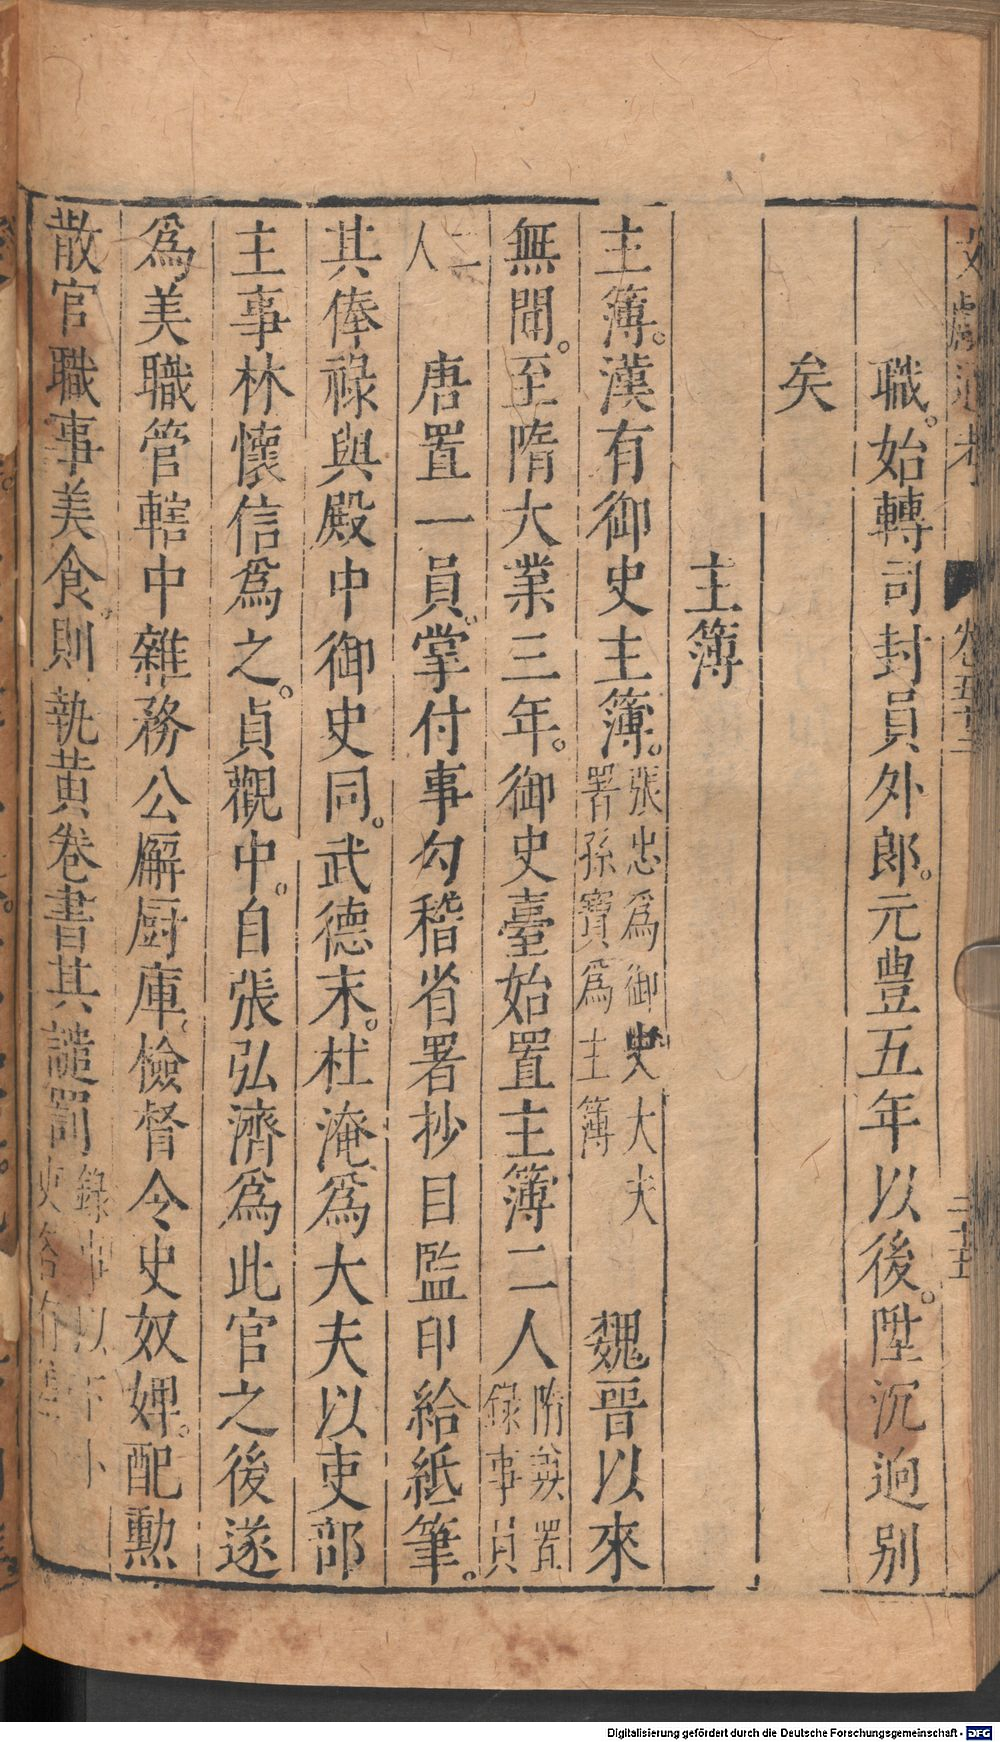 文獻通考 卷五十三 二十五
職。始轉司封員外郎。元豊五年以後。陞沉逈別
矣
主簿
主簿。漢有御史主簿。張忠爲御史大夫署孫寶爲主簿 魏晉以來
無聞。至隋大業三年。御史臺始置主簿二人隋兼置錄事員
二人 唐置一員。掌付事勾稽省署抄目監印給紙筆。
其俸祿與殿中御史同。武德末。杜淹爲大夫以吏部
主事林懷信爲之。貞觀中。自張弘濟爲此官之後遂
爲美職管轄中雜務公廨厨庫。檢督令史奴婢。配勲
散官職事美食。則執黄卷書其譴罰錄事以下
Digitalisierung gefördert durch die Deutsche Forschungsgemeinschaft - DFG